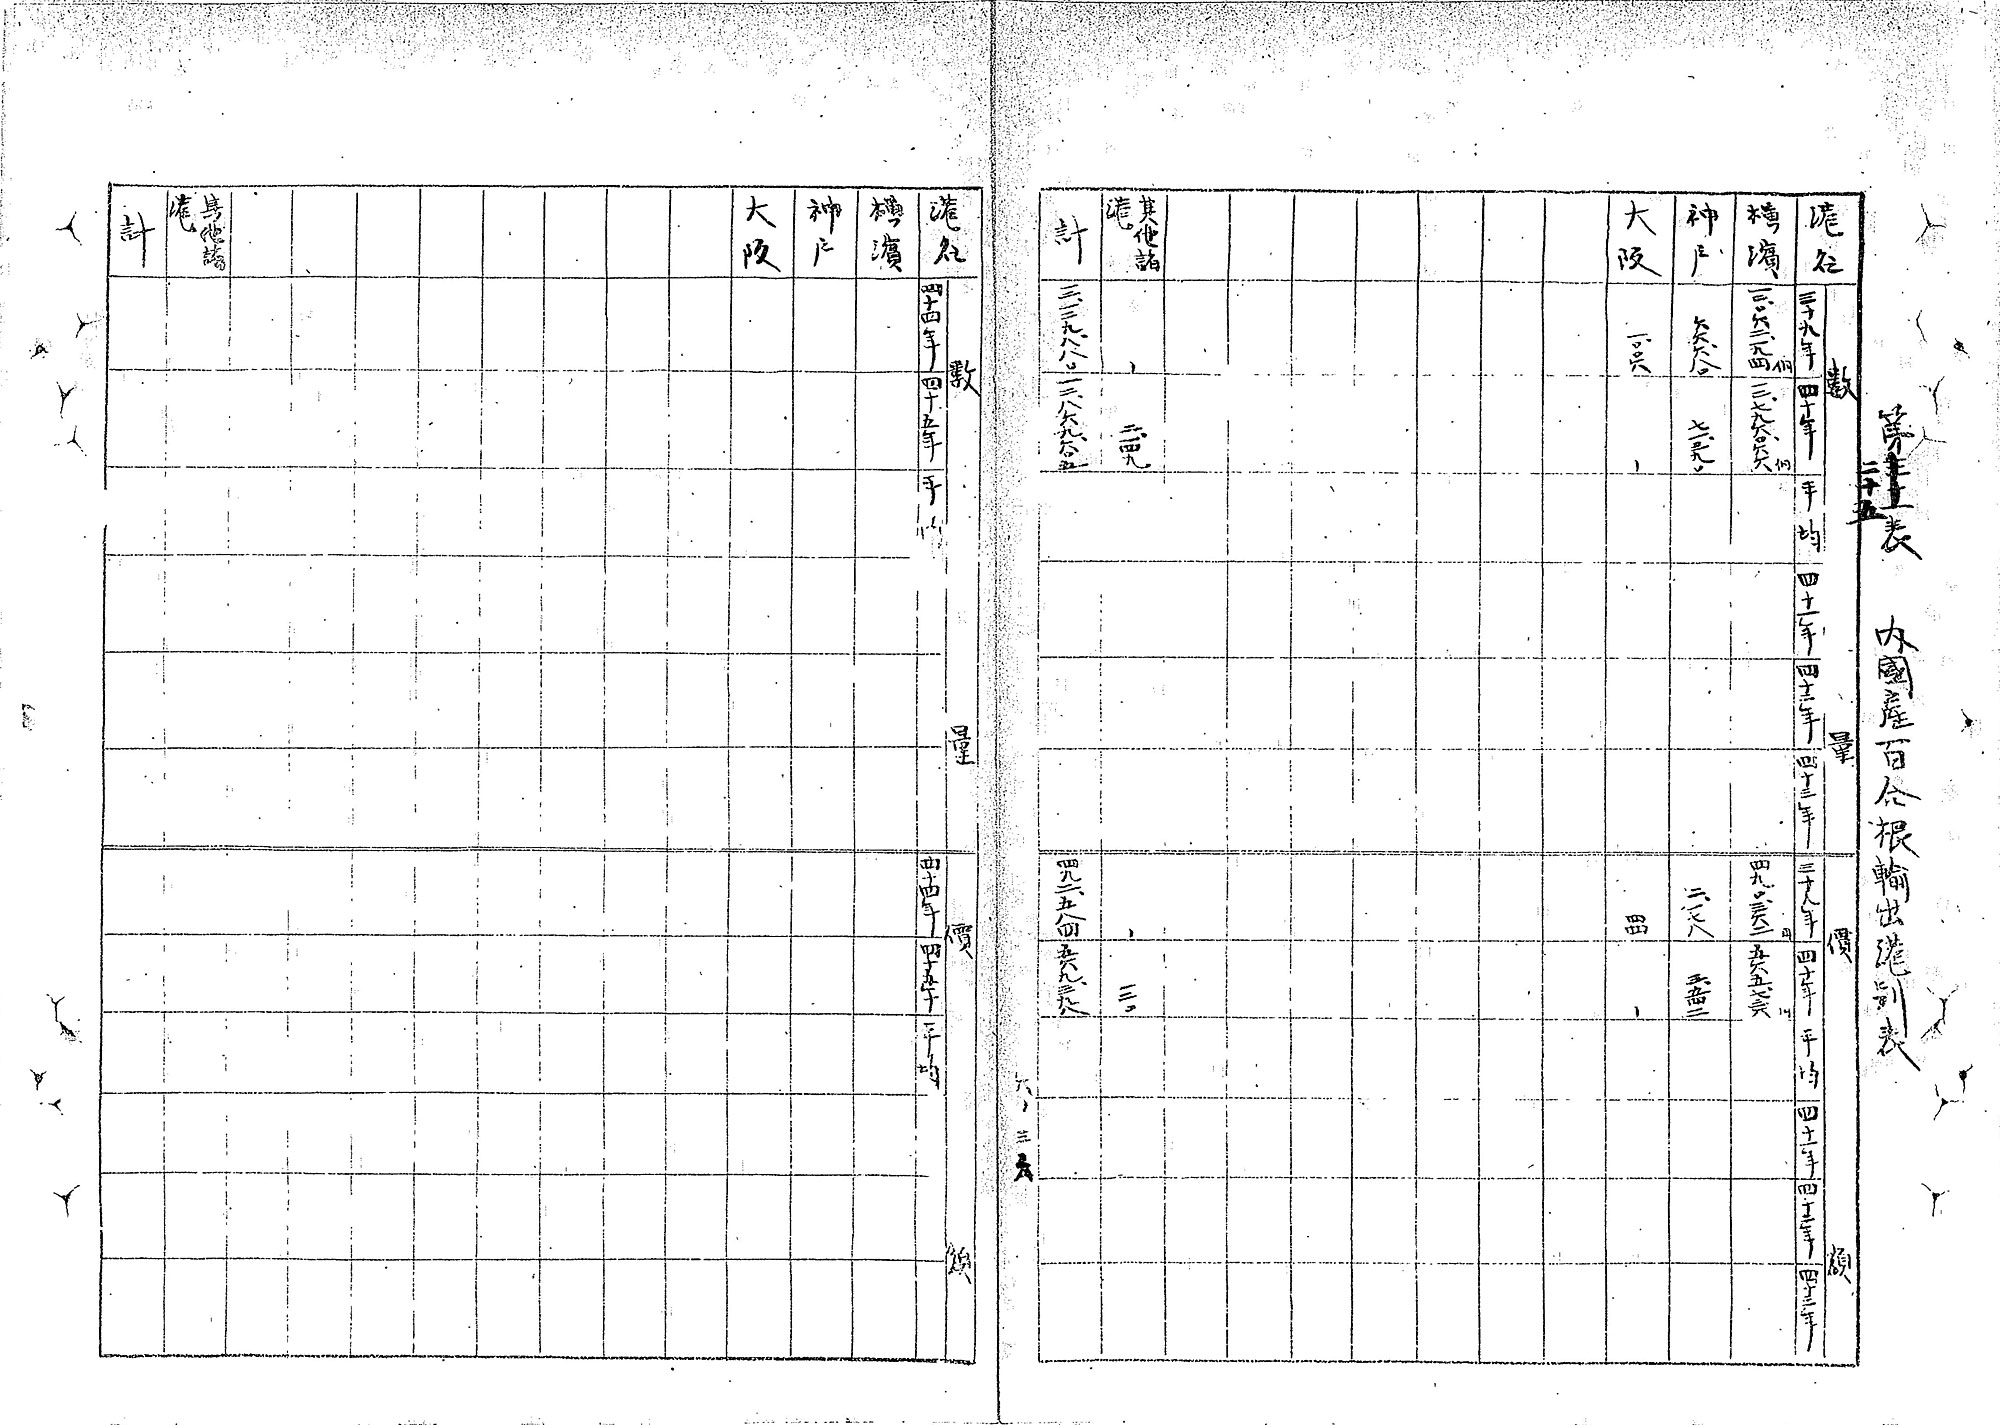 第二十五表　内國産百合根輸出港別表
港名　數　量　價　額
三十九年　四十年　平均　四十一年　四十二年　四十三年　三十九年　四十年　平均　四十一年　四十二年　四十三年
横濱　一三、〇六二、一九四　一三、七九六、〇六六　四九〇、三六二円　五六五、七三六
神戸　六六、六八〇　七一、三九〇　二、一七八　三、五四二
大阪　一、〇〇六　、　四四　、
其他諸港　、　二、一四九　、　一二〇
計　一三、一二九、八八〇　一三、八六九、六〇五　四九二、五八四　五六九、三九八
港名　數　量　價　額
四十四年　四十五年　平均　四十四年　四十五年　平均
横濱
神戸
大阪
其他諸港
計